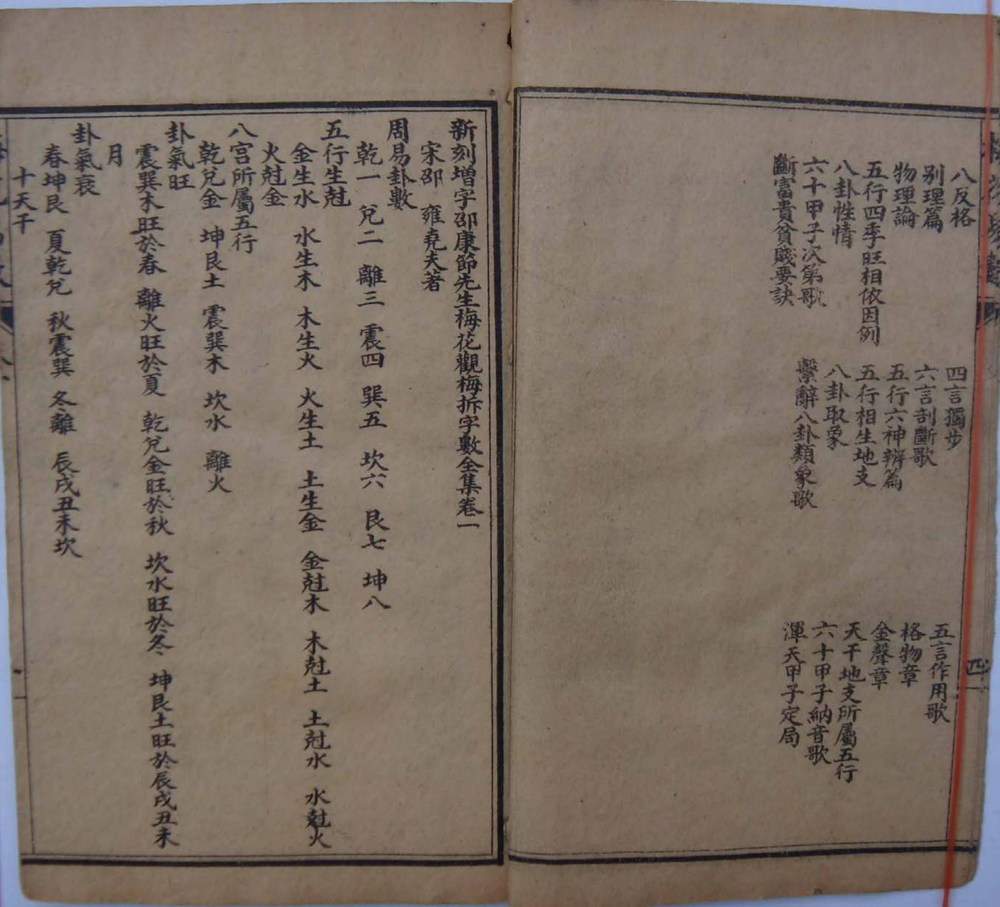 八反格
别理篇
物理論
五行四季旺相依因例
八卦性情
六十甲子次第歌
斷富貴貧賤要訣
四言獨步
六言剖斷歌
五行六神辨篇
五行相生地支
八卦取象
繫辭八卦類象歌
五言作用歌
格物章
金聲章
天干地支所屬五行
六十甲子納音歌
渾天甲子定局
四
新刻增字邵康節先生梅花觀梅拆字數全集卷一
宋邵 雍堯夫著
周易卦數
乾一 兌二 離三 震四 巽五 坎六 艮七 坤八
五行生尅
金生水 水生木 木生火 火生土 土生金 金尅木 木尅土 土尅水 水尅火
火尅金
八宮所屬五行
乾兌金 坤艮土 震巽木 坎水 離火
卦氣旺
震巽木旺於春 離火旺於夏 乾兌金旺於秋 坎水旺於冬 坤艮土旺於辰戌丑未
月
卦氣衰
春坤艮 夏乾兌 秋震巽 冬離 辰戌丑未坎
十天干